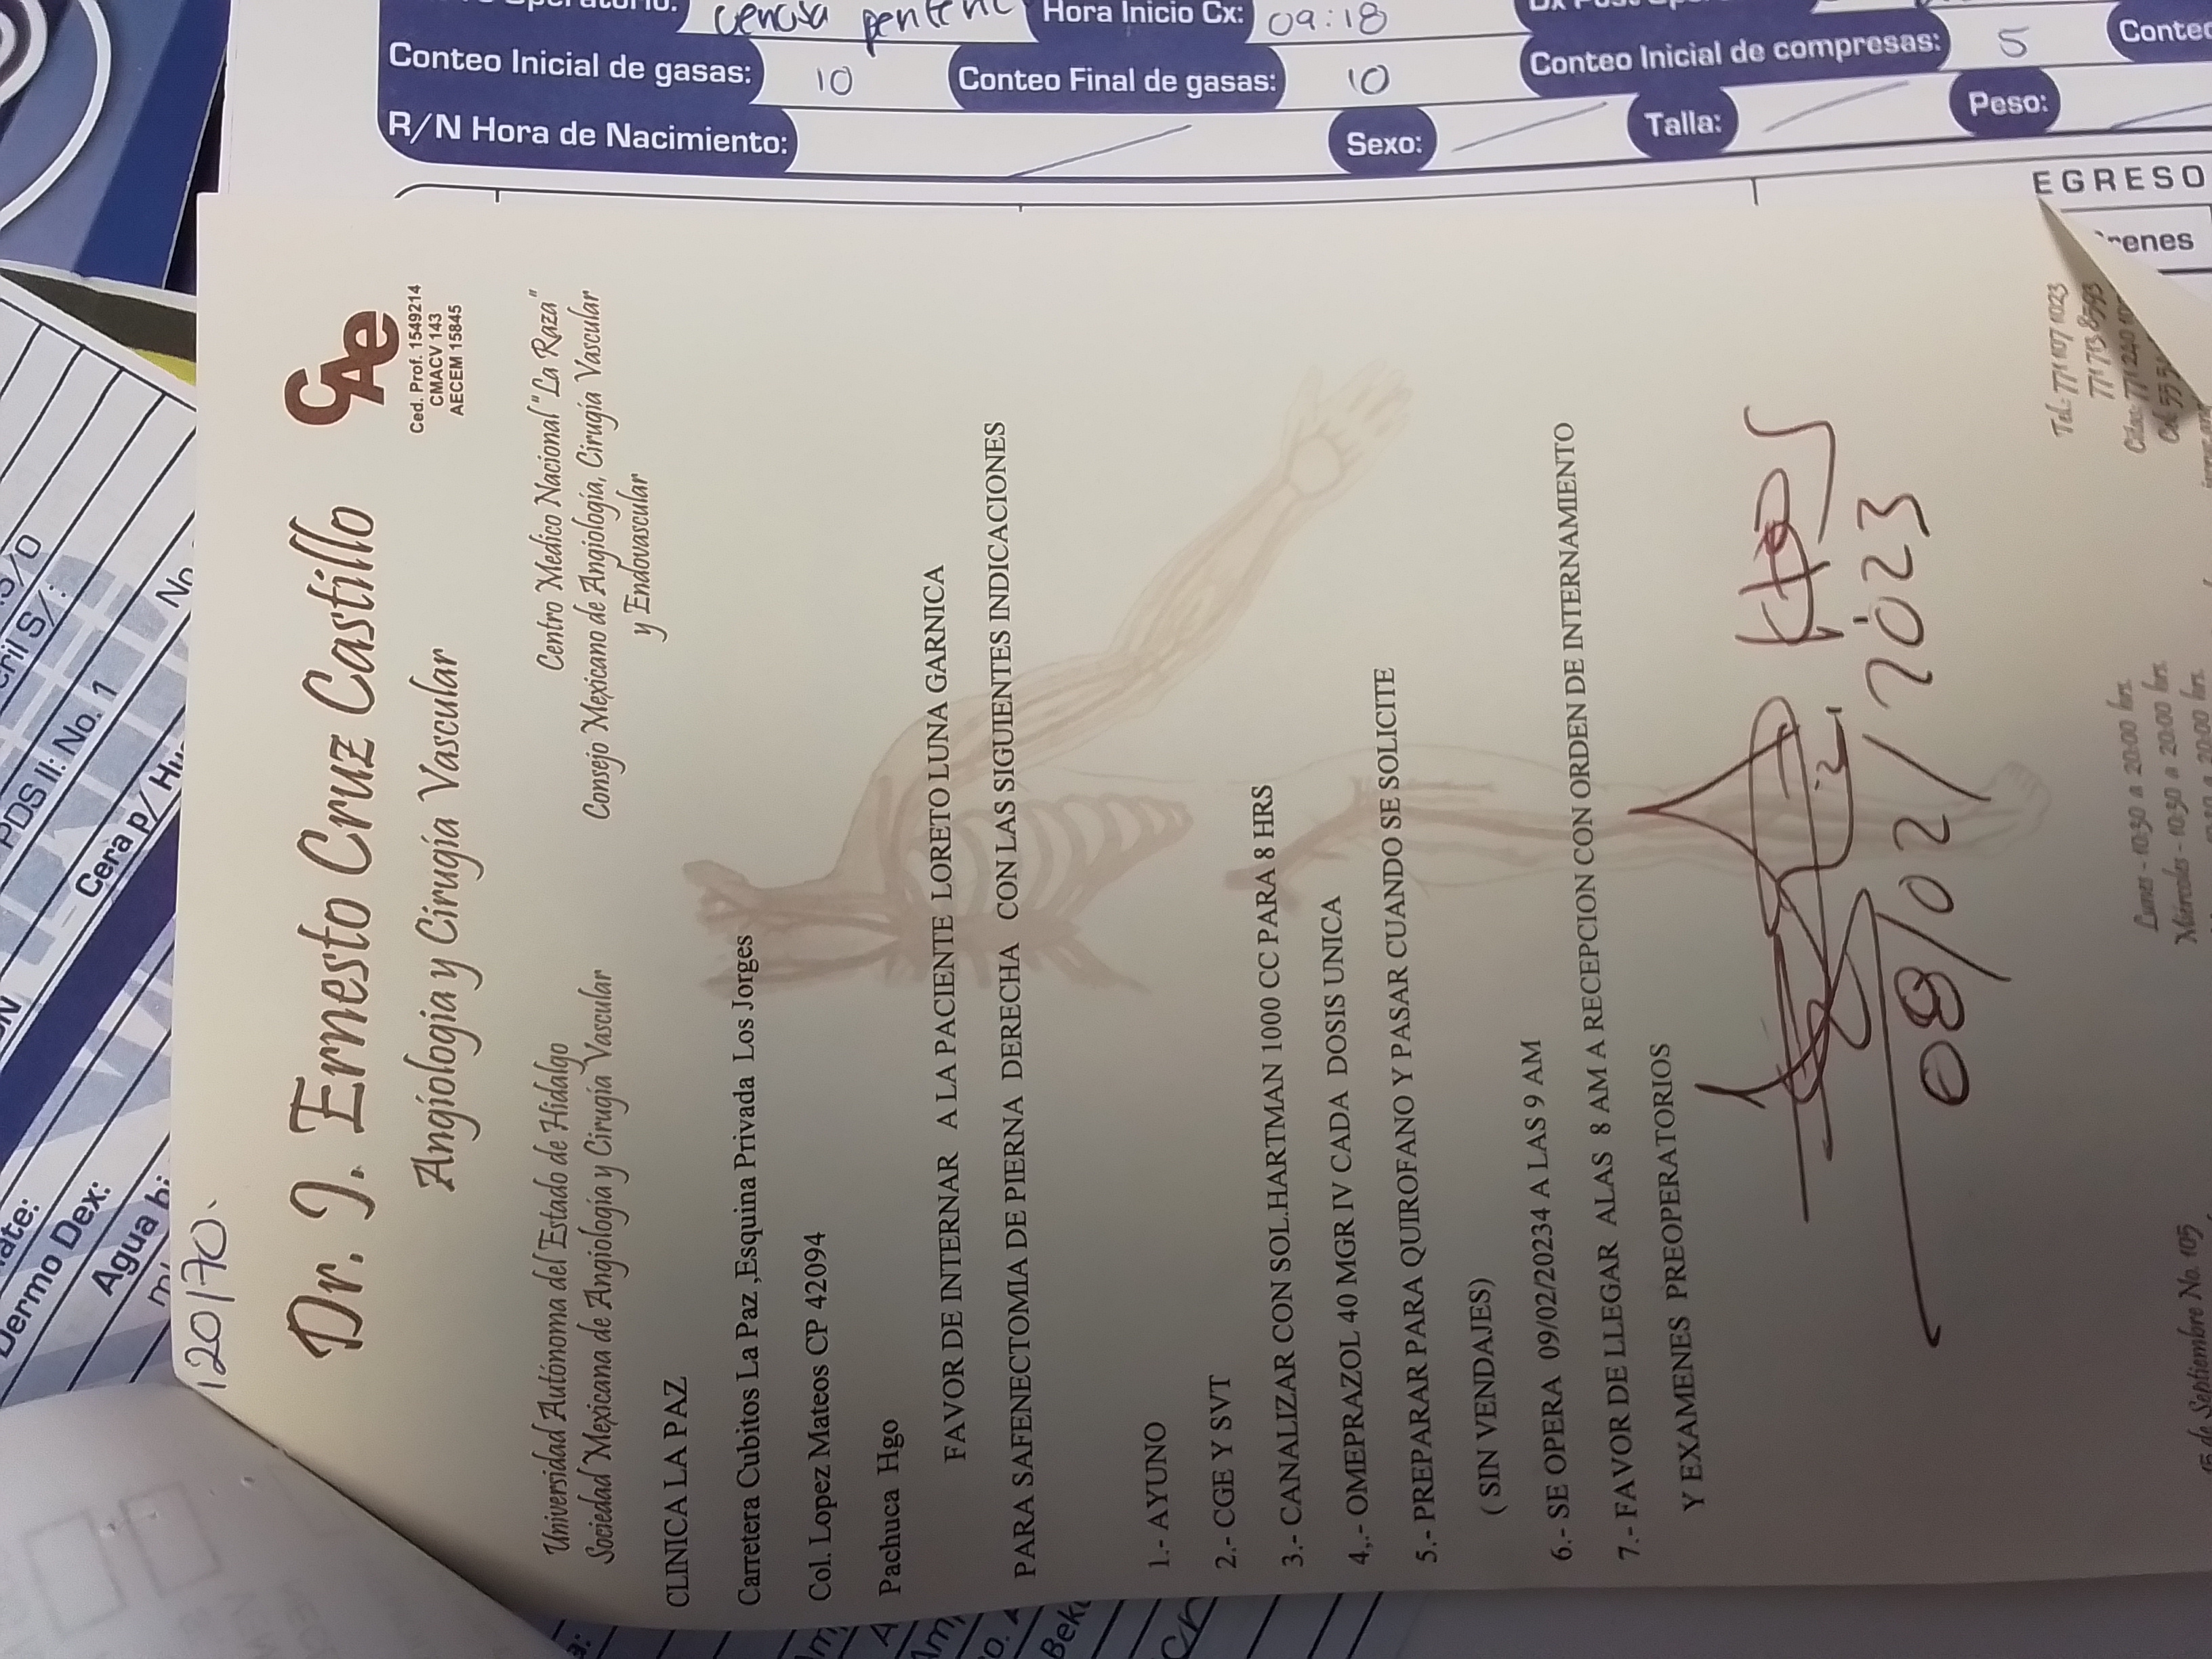 Hora Inicio Cx: 09:18
Conteo Inicial de gasas: 10 Conteo Final de gasas: 10 Conteo Inicial de compresas: 5
R/N Hora de Nacimiento: Sexo: Talla: Peso:
EGRESO
120/70.
Dr. J. Ernesto Cruz Castillo
Angiologia y Cirugía Vascular
CAe
Ced. Prof. 1549214
CMACV 143
AECEM 15845
Universidad Autónoma del Estado de Hidalgo
Sociedad Mexicana de Angiología y Cirugía Vascular
Centro Medico Nacional "La Raza"
Consejo Mexicano de Angiología, Cirugía Vascular
y Endovascular
CLINICA LA PAZ
Carretera Cubitos La Paz ,Esquina Privada Los Jorges
Col. Lopez Mateos CP 42094
Pachuca Hgo
FAVOR DE INTERNAR A LA PACIENTE LORETO LUNA GARNICA
PARA SAFENECTOMIA DE PIERNA DERECHA CON LAS SIGUIENTES INDICACIONES
1.- AYUNO
2.- CGE Y SVT
3.- CANALIZAR CON SOL.HARTMAN 1000 CC PARA 8 HRS
4,.- OMEPRAZOL 40 MGR IV CADA DOSIS UNICA
5.- PREPARAR PARA QUIROFANO Y PASAR CUANDO SE SOLICITE
( SIN VENDAJES)
6.- SE OPERA 09/02/20234 A LAS 9 AM
7.- FAVOR DE LLEGAR ALAS 8 AM A RECEPCION CON ORDEN DE INTERNAMIENTO
Y EXAMENES PREOPERATORIOS
08/02/2023
Tel.: 771 107 1023
Lunes - 10:30 a 20:00 hrs.
Miércoles - 10:30 a 20:00 hrs.
de Septiembre No. 105
PDS II: No. 1
Cera p/
Dermo Dex:
Agua